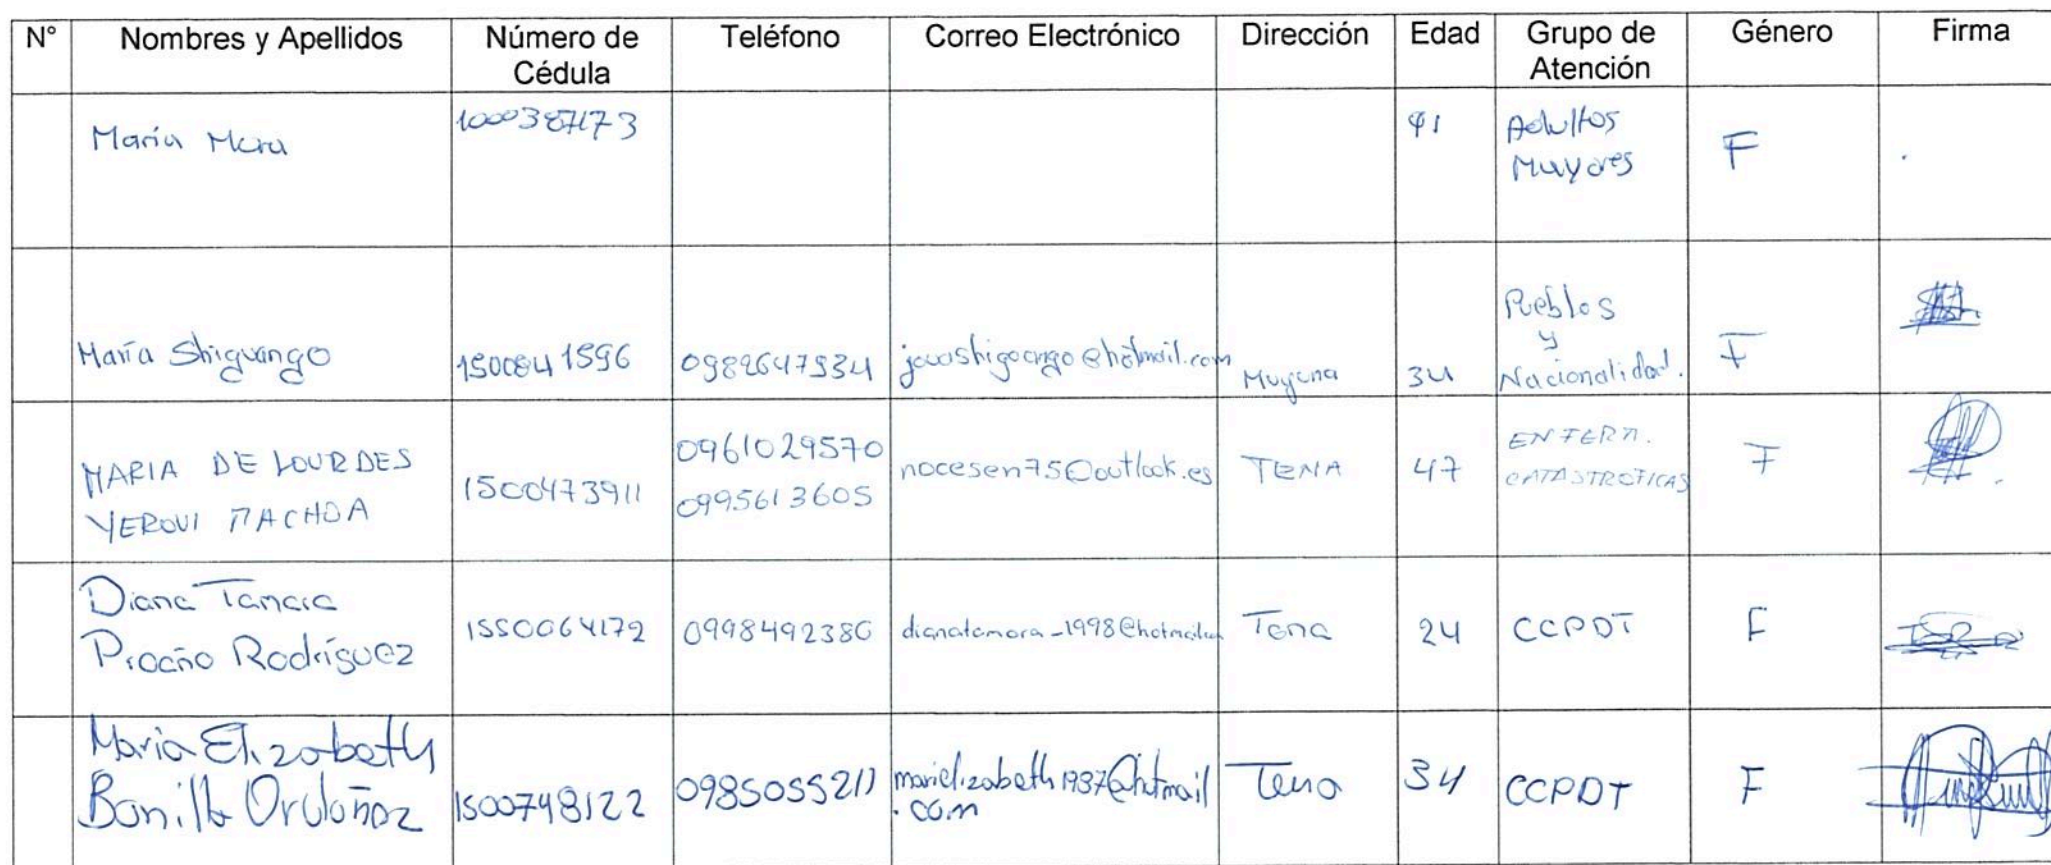 N° Nombres y Apellidos Número de Cédula Teléfono Correo Electrónico Dirección Edad Grupo de Atención Género Firma
María Mora 1000387173 Adultos Mayores F
María Shiguango 1500841596 Muyuna 34 Pueblos y Nacionalidad. F
MARIA DE LOURDES YEROVI MACHOA 1500473911 0961029570 0995613605 nocesen75@outlook.es TENA 47 ENFERM. CATASTROFICAS F
Diana Tamara Proaño Rodríguez 1550064172 0998492380 dianatamara-1998@hotmail Tena 24 CCPDT F
Maria Elizabeth Bonilla Ordoñez 1500748122 0985055211 marielizabeth1987@hotmail.com Tena 34 CCPDT F